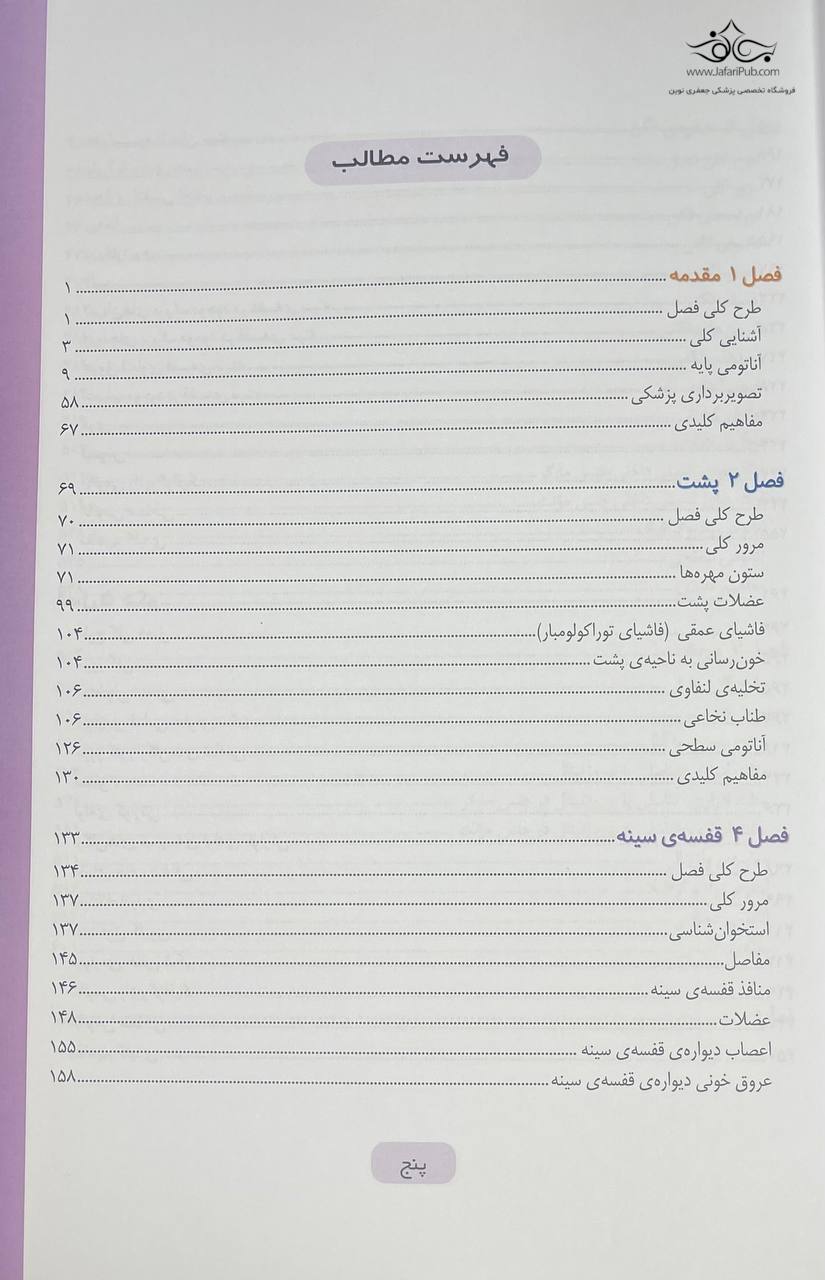 www.JafariPub.com
فروشگاه تخصصی پزشکی جعفری نوین
فهرست مطالب
فصل ۱ مقدمه ..... ۱
طرح کلی فصل ..... ۱
آشنایی کلی ..... ۳
آناتومی پایه ..... ۹
تصویربرداری پزشکی ..... ۵۸
مفاهیم کلیدی ..... ۶۷
فصل ۲ پشت ..... ۶۹
طرح کلی فصل ..... ۷۰
مرور کلی ..... ۷۱
ستون مهره‌ها ..... ۷۱
عضلات پشت ..... ۹۹
فاشیای عمقی (فاشیای توراکولومبار) ..... ۱۰۴
خون‌رسانی به ناحیه‌ی پشت ..... ۱۰۴
تخلیه‌ی لنفاوی ..... ۱۰۶
طناب نخاعی ..... ۱۰۶
آناتومی سطحی ..... ۱۲۶
مفاهیم کلیدی ..... ۱۳۰
فصل ۴ قفسه‌ی سینه ..... ۱۳۳
طرح کلی فصل ..... ۱۳۴
مرور کلی ..... ۱۳۷
استخوان‌شناسی ..... ۱۳۷
مفاصل ..... ۱۴۵
منافذ قفسه‌ی سینه ..... ۱۴۶
عضلات ..... ۱۴۸
اعصاب دیواره‌ی قفسه‌ی سینه ..... ۱۵۵
عروق خونی دیواره‌ی قفسه‌ی سینه ..... ۱۵۸
پنج